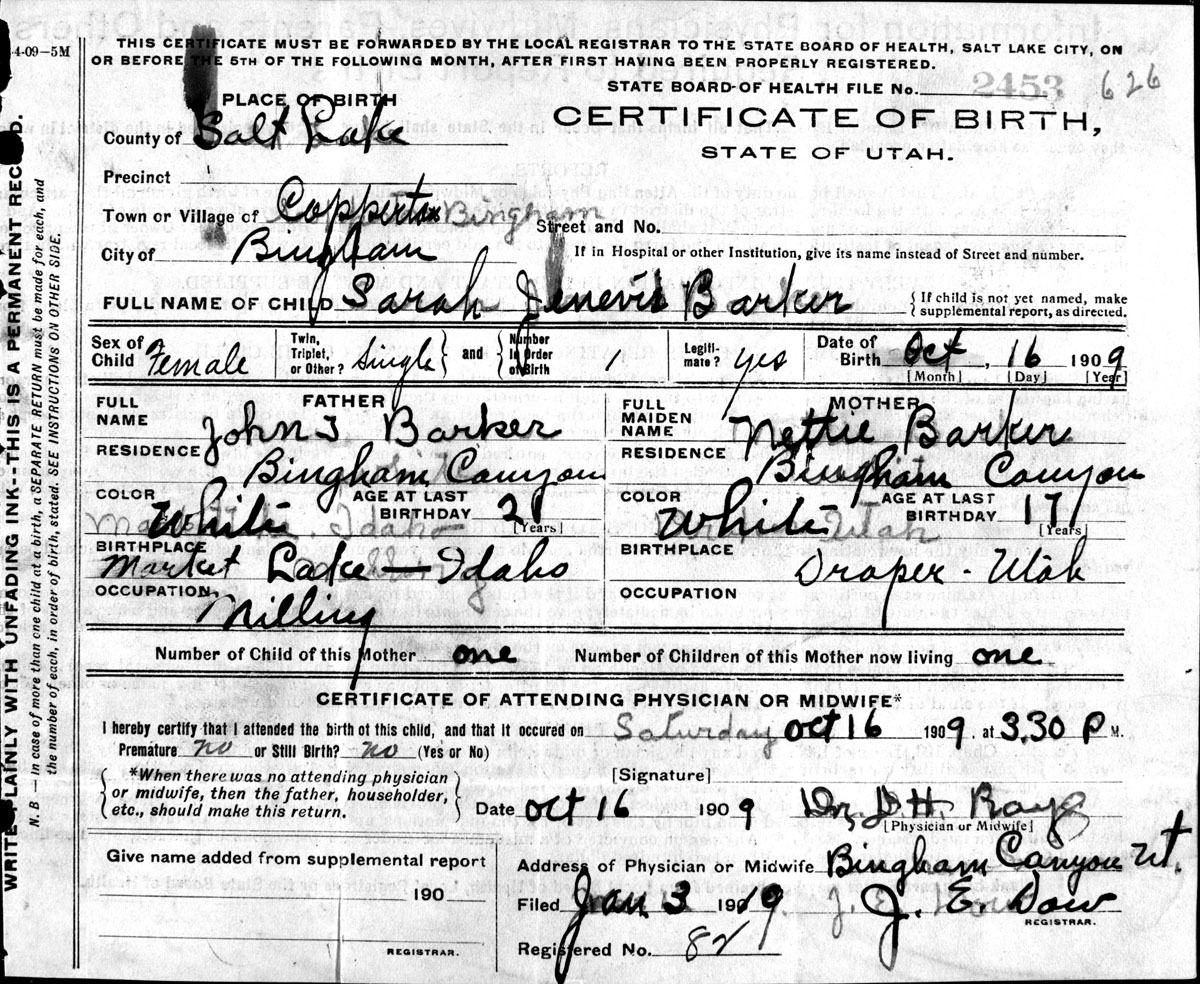 4-09-5M
THIS CERTIFICATE MUST BE FORWARDED BY THE LOCAL REGISTRAR TO THE STATE BOARD OF HEALTH, SALT LAKE CITY, ON
OR BEFORE THE 5TH OF THE FOLLOWING MONTH, AFTER FIRST HAVING BEEN PROPERLY REGISTERED.
STATE BOARD OF HEALTH FILE No. 2453 626
PLACE OF BIRTH
CERTIFICATE OF BIRTH,
County of Salt Lake
STATE OF UTAH.
Precinct
Town or Village of Copperton Bingham Street and No.
City of Bingham If in Hospital or other Institution, give its name instead of Street and number.
FULL NAME OF CHILD Sarah Jenevie Barker {If child is not yet named, make
supplemental report, as directed.
Sex of Child Female Twin, Triplet, or Other? Single } and { Number in Order of Birth 1 Legiti-mate? yes Date of Birth Oct, 16 1909
[Month] [Day] [Year]
FATHER MOTHER
FULL NAME John J Barker FULL MAIDEN NAME Nettie Barker
RESIDENCE Bingham Canyon RESIDENCE Bingham Canyon
COLOR White AGE AT LAST BIRTHDAY [Years] COLOR White AGE AT LAST BIRTHDAY 17 [Years]
Idaho Utah
BIRTHPLACE Market Lake - Idaho BIRTHPLACE Draper - Utah
OCCUPATION Milling OCCUPATION
Number of Child of this Mother one Number of Children of this Mother now living one
CERTIFICATE OF ATTENDING PHYSICIAN OR MIDWIFE*
I hereby certify that I attended the birth of this child, and that it occured on Saturday Oct 16 1909. at 3.30 P M.
Premature no or Still Birth? no (Yes or No)
{*When there was no attending physician
or midwife, then the father, householder,
etc., should make this return.}
[Signature]
Date Oct 16 1909 Dr. D. H. Ray
[Physician or Midwife]
Give name added from supplemental report
190
REGISTRAR.
Address of Physician or Midwife Bingham Canyon Ut.
Filed Jan 3 19 J. E. Dow
REGISTRAR.
Registered No. 82
WRITE PLAINLY WITH UNFADING INK--THIS IS A PERMANENT RECORD.
N. B.—In case of more than one child at a birth, a SEPARATE RETURN must be made for each, and
the number of each, in order of birth, stated. SEE INSTRUCTIONS ON OTHER SIDE.